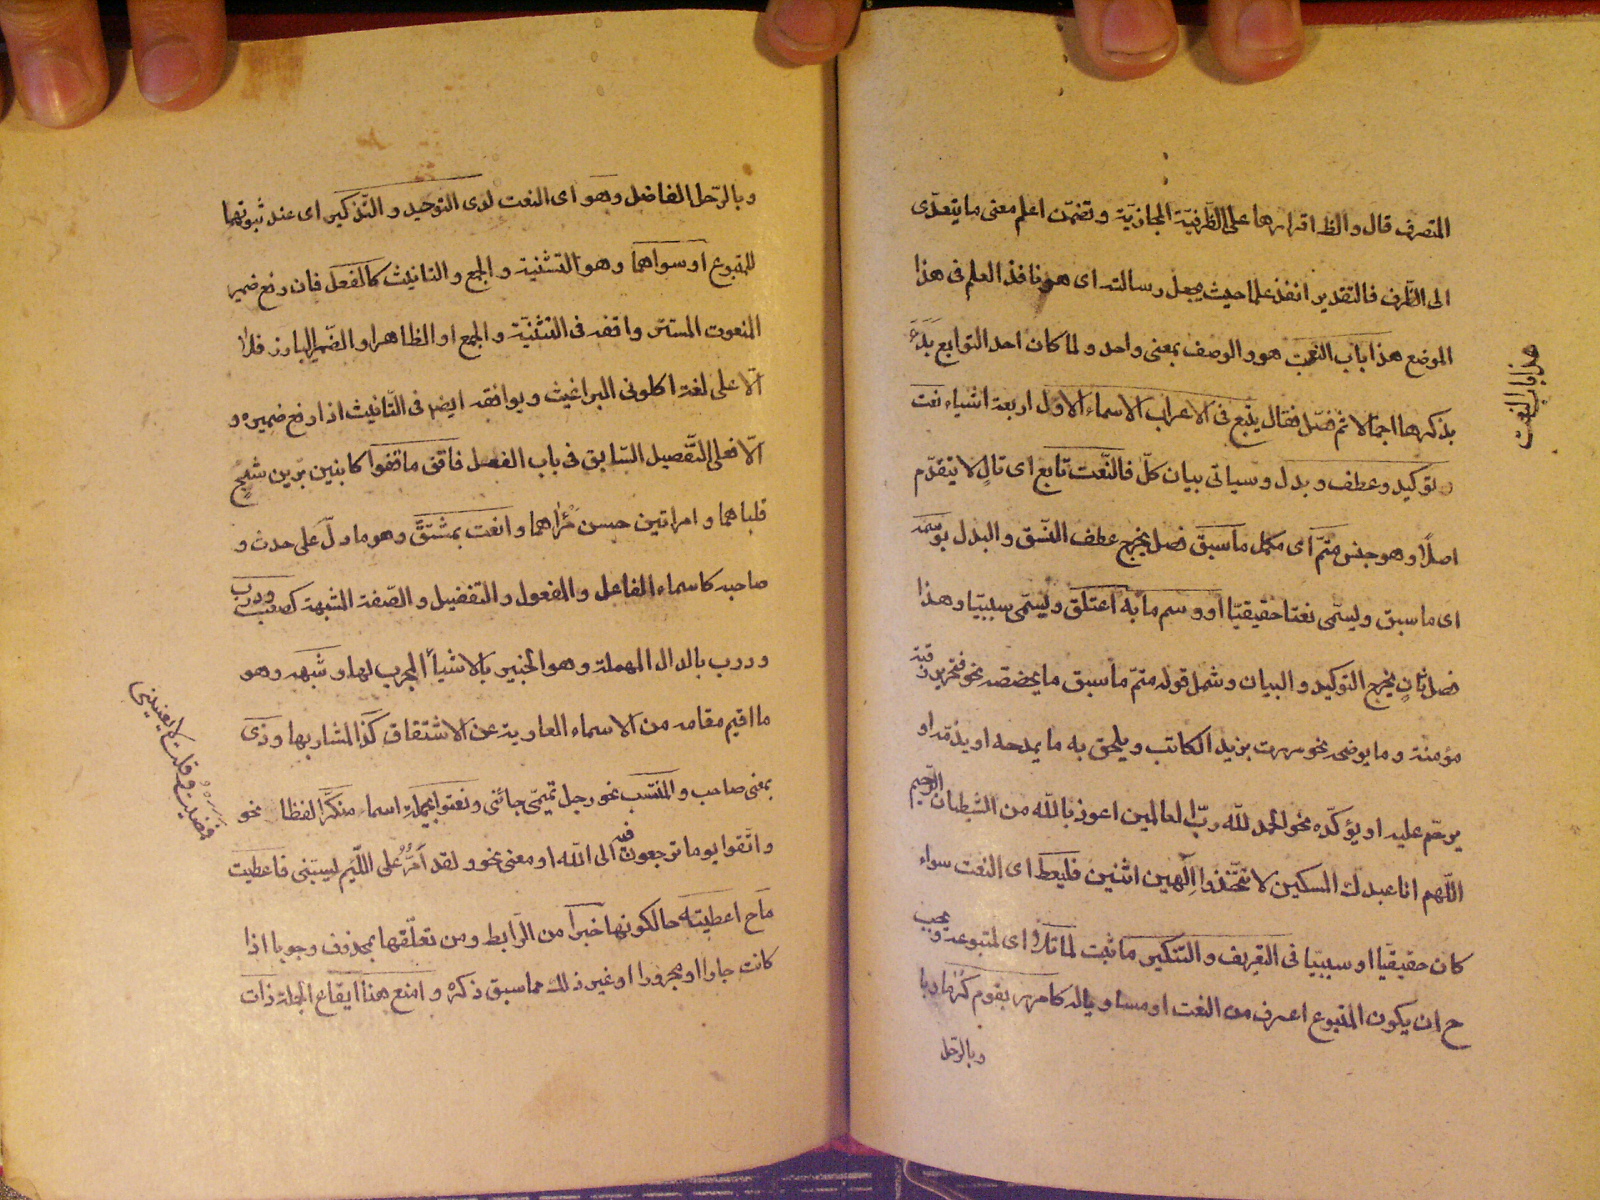 المتصرف قال والظ اقرارها على الظرفيّة المجازيّة وتضمّن اعلم معنى ما يتعدّى
الى الظّرف فالتقدير انفذ علما حيث يجعل رسالته اى هو نافذ العلم فى هذا
الموضع هذا باب النعت هو والوصف بمعنى واحد ولما كان احد التوابع بدء
بذكرها اجمالا ثم فصّل فقال يتبع فى الاعراب الاسماء الاول اربعة اشياء نعت
وتوكيد وعطف وبدل وسياتى بيان كلّ فالنّعت تابع اى تالٍ لا يتقدّم
اصلًا وهو جنس متمّ اى مكمل ما سبق فصل يخرج عطف النّسق والبدل بوسمه
اى ما سبق ويسمّى نعتا حقيقيّا او وسم ما به اعتلق ويسمّى سببيّا وهذا
فصل ثانٍ يخرج التوكيد والبيان وشمل قوله متمّ ما سبق ما يخصّصه نحو فتحرير رقبة
مؤمنة وما يوضحه نحو مررت بزيد الكاتب ويلحق به ما يمدحه او يذمّه او
يرحّم عليه او يؤكّده نحو الحمد للّه ربّ العالمين اعوذ باللّه من الشّيطان الرّجيم
اللّهم انا عبدك المسكين لا تتّخذوا إلهين اثنين فليعط اى النعت سواء
كان حقيقيّا او سببيّا فى التعريف والتنكير ما ثبت لما تلا اى لمتبوعه ويجب
ح ان يكون المتبوع اعرف من النعت او مساويا له كامرر بقوم كُرَمَا وبا
وبالرّجل
هذا باب النعت
وبالرّجل الفاضل وهو اى النعت لدى التوحيد والتّذكير اى عند ثبوتهما
للمتبوع او سواهما وهو التثنية والجمع والتانيث كالفعل فان رفع ضمير
المنعوت المستتر وافقه فى التثنيّة والجمع او الظاهر او الضّمير البارز فلا
الّا على لغة اكلونى البراغيث ويوافقه ايضا فى التّانيث اذا رفع ضميره و
الّا فعلى التّفصيل السّابق فى باب الفعل فاقف ما قفوا كابنين برّين شجٍ
قلباهما وامراتين حسن مَرْآهما وانعت بمشتقّ وهو ما دلّ على حدث و
صاحبه كاسماء الفاعل والمفعول والتفضيل والصّفة المشبهة كصعب ودرب
ودرب بالدال المهملة وهو الخبير بالاشياء المجرب لها وشبهه وهو
ما اقيم مقامه من الاسماء العارية عن الاشتقاق كذا المشار بها وذى
بمعنى صاحب والمنتسب نحو رجل تميمىّ جائنى ونعتوا بجملة اسما منكّرا لفظا نحو
واتّقوا يوما ترجعون فيه الى اللّه او معنى نحو ولقد اَمُرُّ على اللّئيم يسبّنى فاعطيت
ما ح اعطيته حالكونها خبراً من الرّابط ومن تعلّقها بمحذوف وجوبا اذا
كانت جارا او مجرورا او غير ذلك مما سبق ذكره وامنع هنا ايقاع الجملة ذات
فمضيت وقلت لا يعنينى